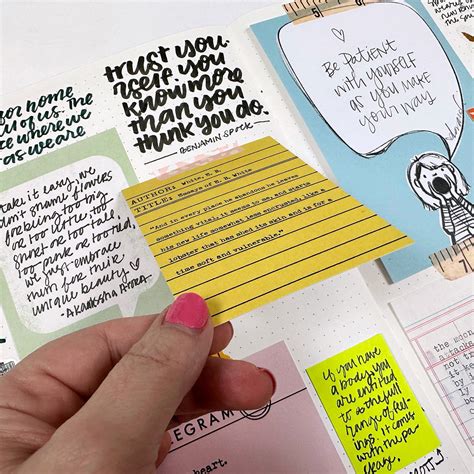 for home
of us. The
ce where we
as we are
trust you
rself. you
know more
than you
think you do.
— BENJAMIN SPOCK
Be Patient
with yourself
as you make
your way
take it easy, we
don't shame flowers
for being too big
or too little, too
short or too tall,
too pink or too red,
we just embrace
them for their
unique beauty
AUTHOR: White, E. B.
TITLE: Essays of E. B. White
"And in every place he abandons he leaves
something vital, it seems to me, and starts
his new life somewhat less encrusted, like a
lobster that has shed its skin and is for a
time soft and vulnerable."
If you have
a body, you
are entitled
to the full
range of feel-
ings. It comes
with the pa-
ckage.
LEGRAM
heart.
the moon
attacks
not
it ke